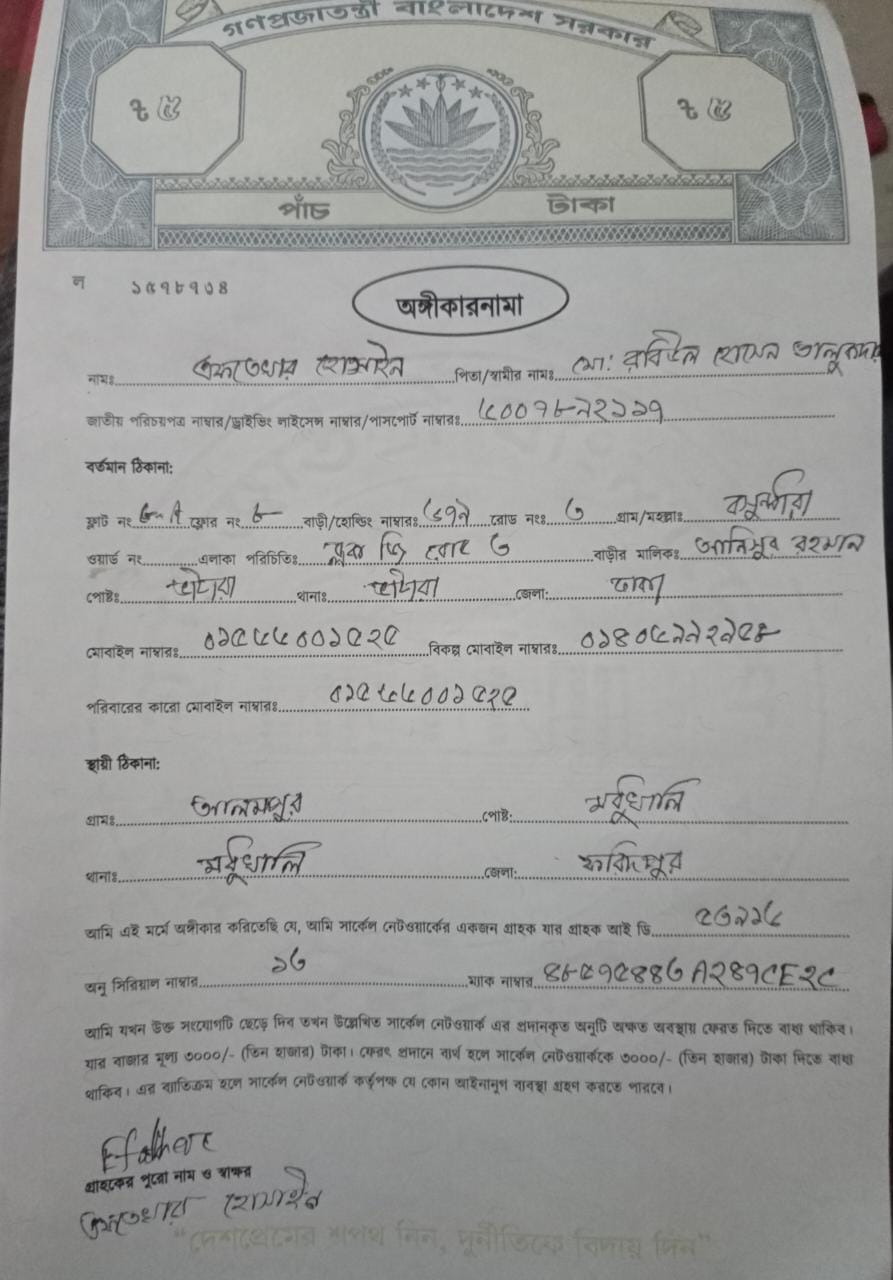 গণপ্রজাতন্ত্রী বাংলাদেশ সরকার
৳ ৫ ৳ ৫
পাঁচ টাকা
ল ১৫৭৮৭৩৪
অঙ্গীকারনামা
নামঃ এফতেখার হোসাইন পিতা/স্বামীর নামঃ মো: রবিউল হোসেন তালুকদার
জাতীয় পরিচয়পত্র নাম্বার/ড্রাইভিং লাইসেন্স নাম্বার/পাসপোর্ট নাম্বারঃ
বর্তমান ঠিকানা:
ফ্লাট নং ফ্লোর নং ৮ বাড়ী/হোল্ডিং নাম্বারঃ রোড নংঃ ৩ গ্রাম/মহল্লাঃ বসুন্ধারা
ওয়ার্ড নং এলাকা পরিচিতিঃ ব্লক জি রোড ৩ বাড়ীর মালিকঃ আনিসুর রহমান
পোষ্টঃ ভাটারা থানাঃ ভাটারা জেলা: ঢাকা
মোবাইল নাম্বারঃ বিকল্প মোবাইল নাম্বারঃ
পরিবারের কারো মোবাইল নাম্বারঃ
স্থায়ী ঠিকানা:
গ্রামঃ আলমপুর পোষ্ট: মধুখালি
থানাঃ মধুখালি জেলা: ফরিদপুর
আমি এই মর্মে অঙ্গীকার করিতেছি যে, আমি সার্কেল নেটওয়ার্কের একজন গ্রাহক যার গ্রাহক আই ডি
অনু সিরিয়াল নাম্বার ১৩ ম্যাক নাম্বার ৪৮৫৭৫৪৪৩A২৪৭CE২C
আমি যখন উক্ত সংযোগটি ছেড়ে দিব তখন উল্লেখিত সার্কেল নেটওয়ার্ক এর প্রদানকৃত অনুটি অক্ষত অবস্থায় ফেরত দিতে বাধ্য থাকিব।
যার বাজার মূল্য ৩০০০/- (তিন হাজার) টাকা। ফেরৎ প্রদানে ব্যর্থ হলে সার্কেল নেটওয়ার্ককে ৩০০০/- (তিন হাজার) টাকা দিতে বাধ্য
থাকিব। এর ব্যাতিক্রম হলে সার্কেল নেটওয়ার্ক কর্তৃপক্ষ যে কোন আইনানুগ ব্যবস্থা গ্রহণ করতে পারবে।
গ্রাহকের পুরো নাম ও স্বাক্ষর
এফতেখার হোসাইন
"দেশপ্রেমের শপথ নিন, দুর্নীতিকে বিদায় দিন"